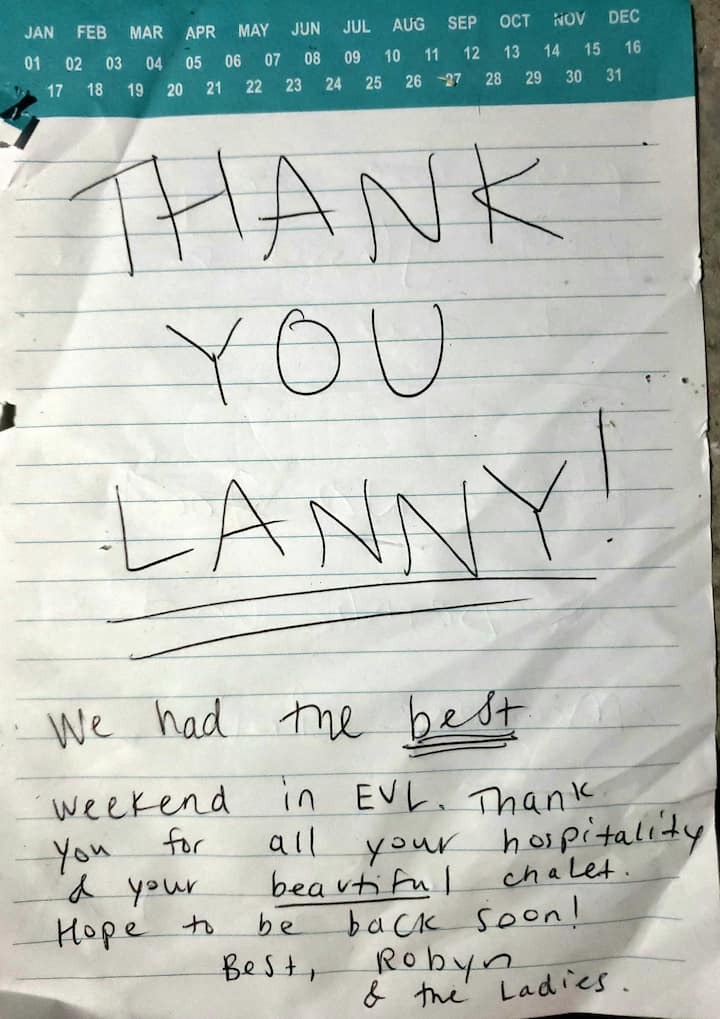 JAN FEB MAR APR MAY JUN JUL AUG SEP OCT NOV DEC
01 02 03 04 05 06 07 08 09 10 11 12 13 14 15 16
17 18 19 20 21 22 23 24 25 26 27 28 29 30 31
THANK
YOU
LANNY!
We had the best
weekend in EVL. Thank
you for all your hospitality
& your beautiful chalet.
Hope to be back soon!
Best, Robyn
& the Ladies.